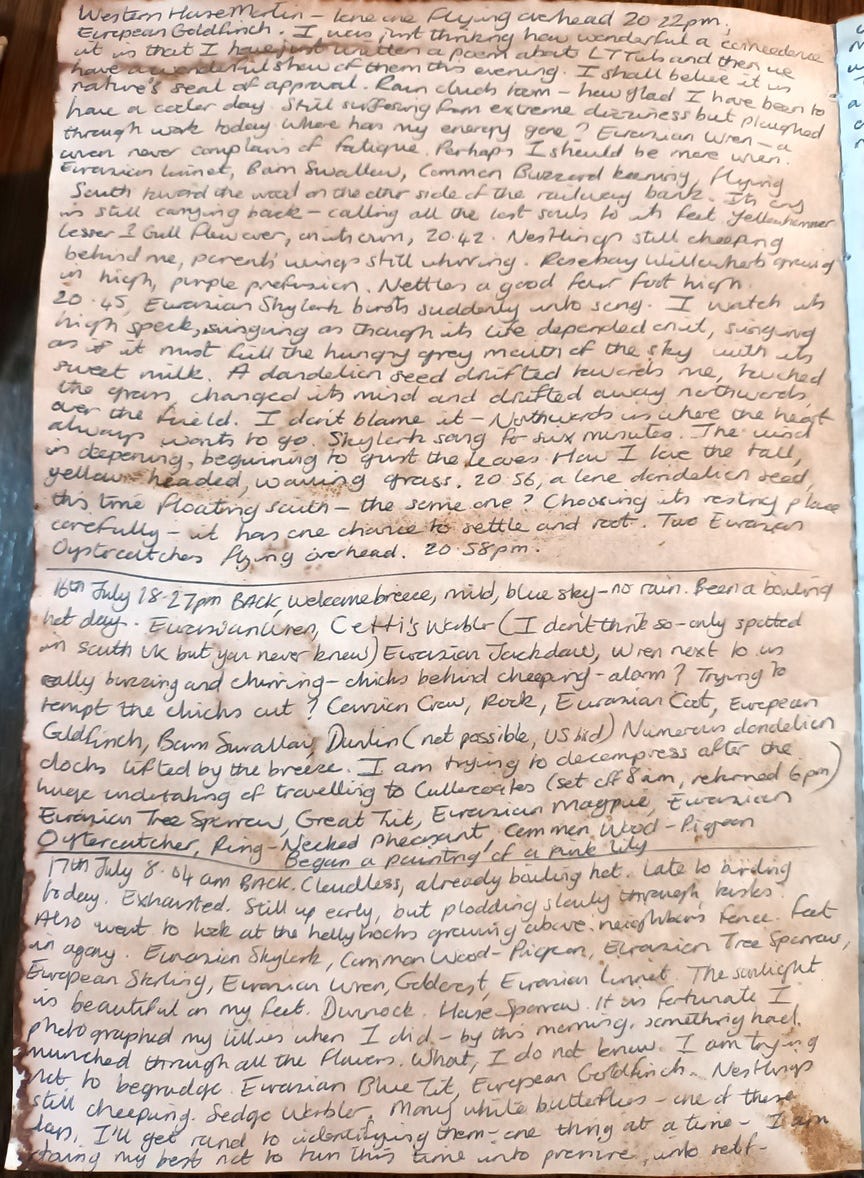 Western House Martin - lone one flying overhead 20 22pm,
European Goldfinch. I was just thinking how wonderful a coincedence
it is that I have just written a poem about LT Tits and then we
have a wonderful show of them this evening. I shall believe it is
nature's seal of approval. Rain clouds loom - how glad I have been to
have a cooler day. Still suffering from extreme dizziness but ploughed
through work today. Where has my energy gone? Eurasian Wren - a
wren never complains of fatigue. Perhaps I should be more wren.
Eurasian Linnet, Barn Swallow, Common Buzzard keening, flying
South toward the wood on the other side of the railway bank. Its cry
is still carrying back - calling all the lost souls to its feet. Yellowhammer
Lesser Gull flew over, on its own, 20.42. Nestlings still cheeping
behind me, parents' wings still whirring. Rosebay Willowherb growing
in high, purple profusion. Nettles a good four foot high.
20.45, Eurasian Skylark bursts suddenly into song. I watch its
high speck, singing as though its life depended on it, singing
as if it must fill the hungry grey mouth of the sky with its
sweet milk. A dandelion seed drifted towards me, touched
the grass, changed its mind and drifted away northwards,
over the field. I don't blame it - Northwards is where the heart
always wants to go. Skylark sang for six minutes. The wind
is deepening, beginning to gust the leaves. How I love the tall,
yellow-headed, waving grass. 20.56, a lone dandelion seed,
this time floating south - the same one? Choosing its resting place
carefully - it has one chance to settle and root. Two Eurasian
Oystercatchers flying overhead. 20.58pm.
16th July 18.27pm BACK, welcome breeze, mild, blue sky - no rain. Been a boiling
hot day. Eurasian Wren, Cetti's Warbler (I don't think so - only spotted
in south UK but you never know) Eurasian Jackdaw, Wren next to us
really buzzing and churring - chicks behind cheeping - alarm? Trying to
tempt the chicks out? Carrion Crow, Rook, Eurasian Coot, European
Goldfinch, Barn Swallow, Dunlin (not possible, US bird) Numerous dandelion
clocks lifted by the breeze. I am trying to decompress after the
huge undertaking of travelling to Cullercoates (set off 8am, returned 6pm)
Eurasian Tree Sparrow, Great Tit, Eurasian Magpie, Eurasian
Oystercatcher, Ring-Necked Pheasant, Common Wood-Pigeon
Began a painting of a pink lily
17th July 8.04am BACK. Cloudless, already boiling hot. Late to birding
today. Exhausted. Still up early, but plodding slowly through tasks.
Also went to look at the hollyhocks growing above neighbours fence. Feet
in agony. Eurasian Skylark, Common Wood-Pigeon, Eurasian Tree Sparrow,
European Starling, Eurasian Wren, Goldcrest, Eurasian Linnet. The sunlight
is beautiful on my feet. Dunnock. House Sparrow. It is fortunate I
photographed my lilies when I did - by this morning, something had
munched through all the flowers. What, I do not know. I am trying
not to begrudge. Eurasian Blue Tit, European Goldfinch. Nestlings
still cheeping. Sedge Warbler. Many white butterflies - one of these
days, I'll get round to identifying them - one thing at a time - I am
doing my best not to turn this time into pressure, into self-